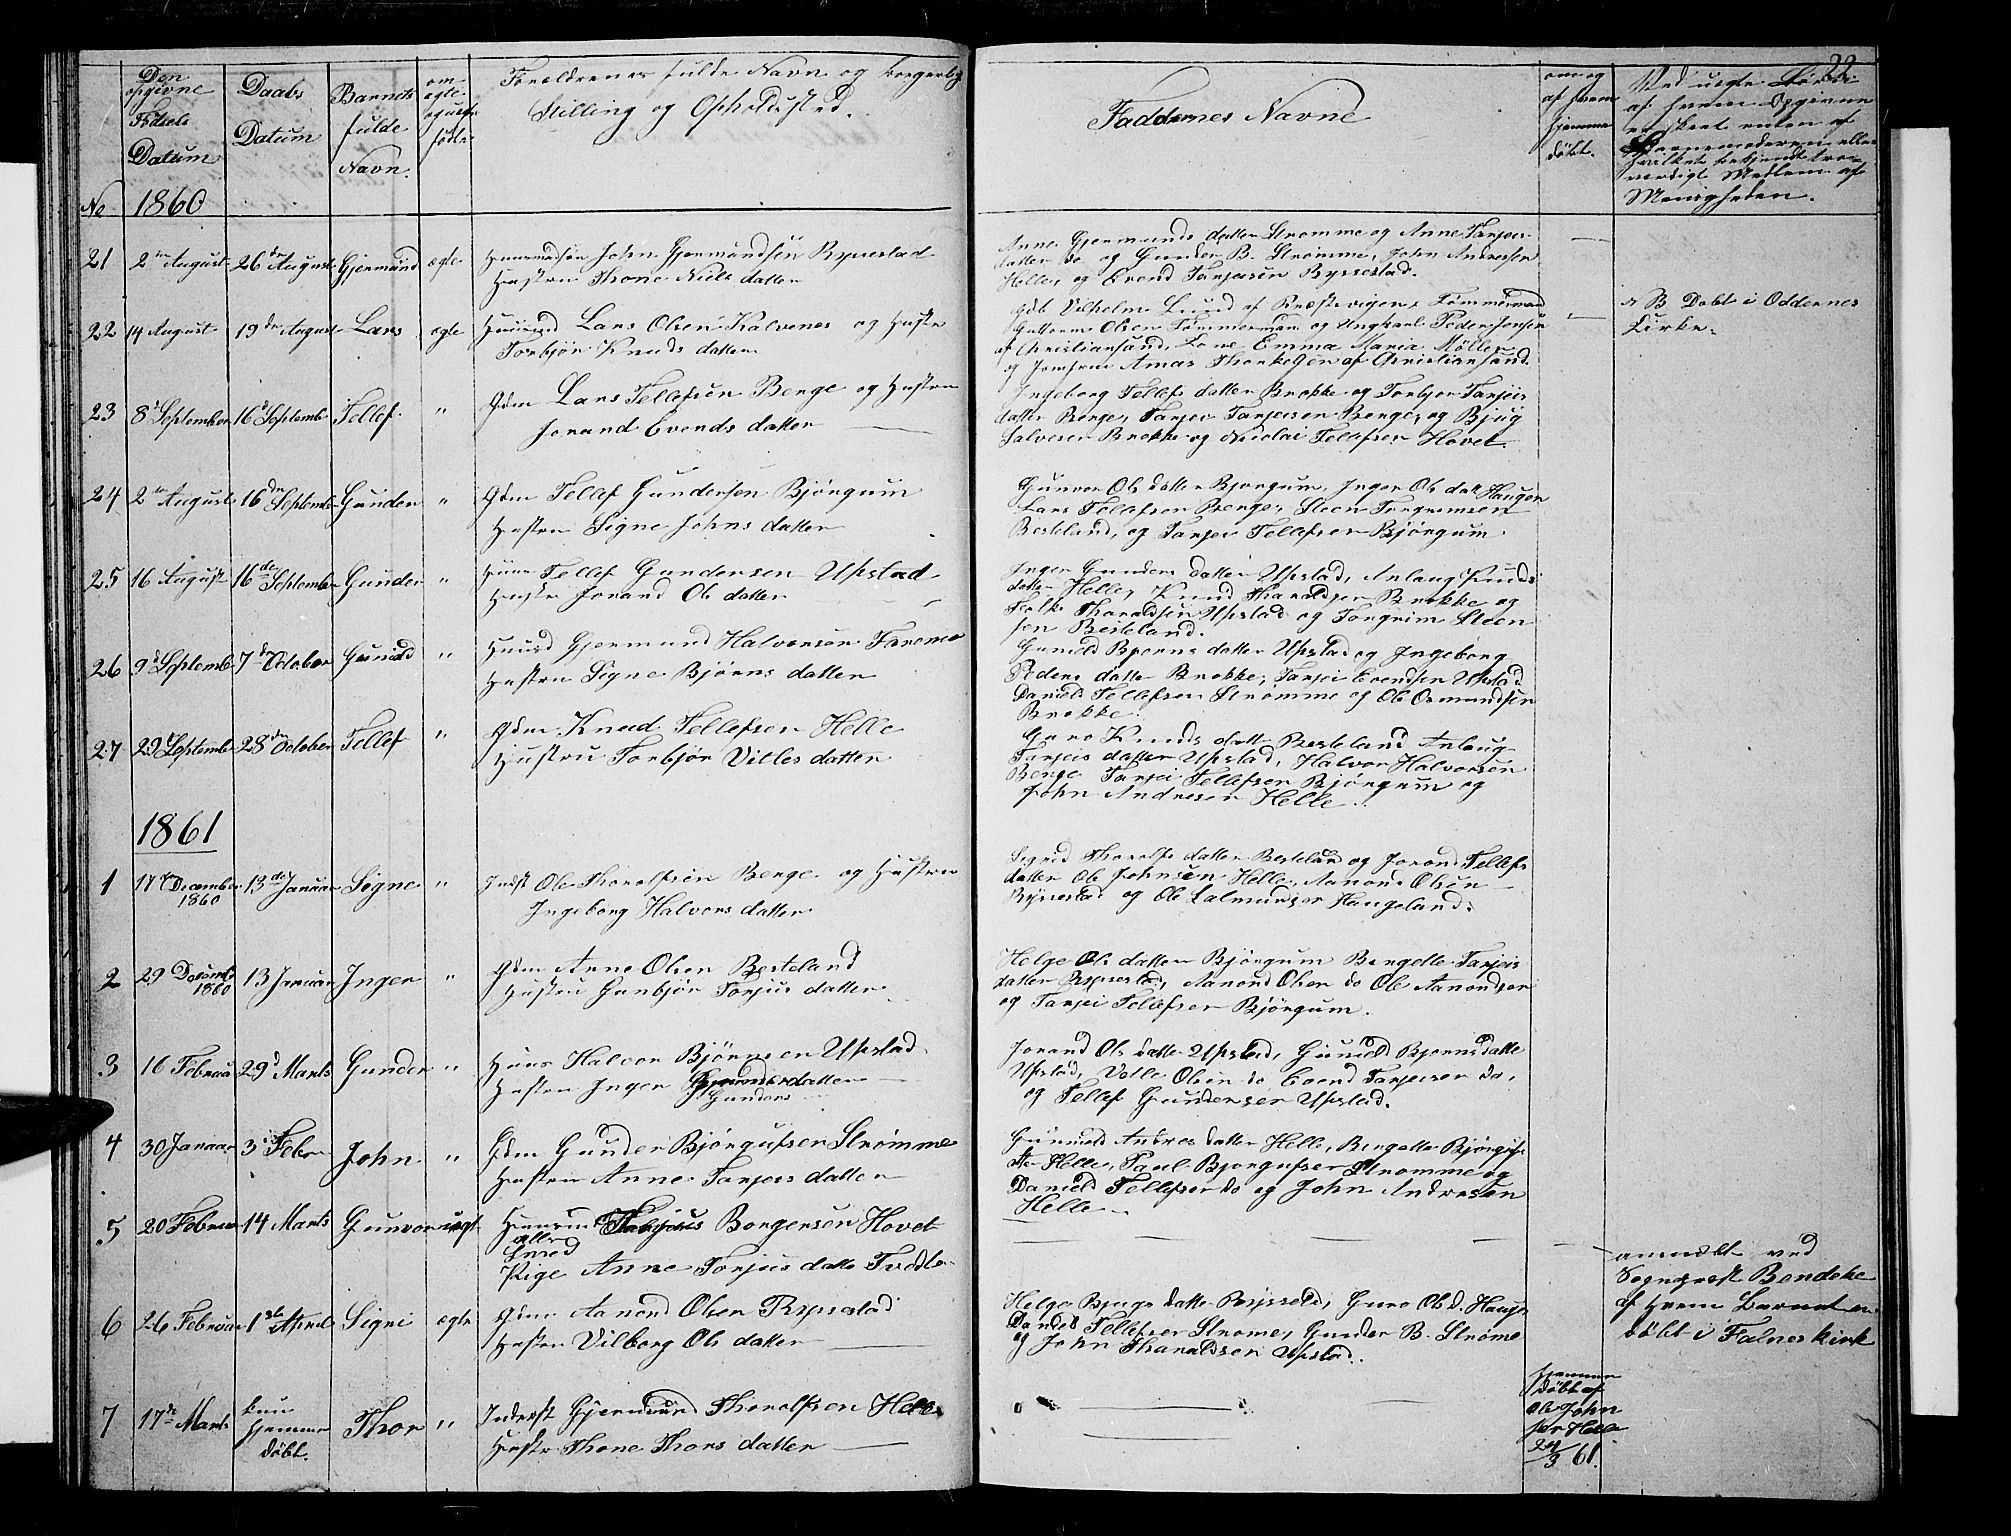 22
Den
opgivne
Fødsels
Datum
Daabs
Datum
Barnets
fulde
Navn.
om
ægte
og uægte
født
Forældrenes fulde Navn og borgerlig
Stilling og Opholdssted.
Faddernes Navne
om og
af hvem
hjemme
døbt.
Ved uægte Børn
af hvem Opgivne
er skeet enten af
Barnemoderen eller
hvilket bekjendt tro-
værdigt Medlem af
Menigheden.
No 1860
21 2den August 26de August Gjermund ægte
John Gjermundsön Ryssestad
Hustru Thone Niels datter
Anne Gjermunds datter Strømme og Anne Tarjeis-
datter do og Gunder B. Strømme, John Andresen
Helle, og Evend Tarjeisen Ryssestad.
22 14 August 19de August Lars ægte
Huusmd Lars Olsen Kalvenes og Hustr
Torbjør Knuds datter
Vilhelm Lund af Tømmermand
Guttorm Olsen Tømmermand og Ungkarl Peder Jonsen
af Christiansand, Emma Maria Møller
og Jomfru Thorkelsen af Christiansand
NB Døbt i Oddernes
Kirke.
23 8de September 16de Septemb Tellef "
Gdm Lars Tellefsen Benge og Hustru
Jorand Evends datter
Ingeborg Tellefs datter Brokke og Torbjør Tarjeis
datter Benge, Tarjei Tarjeisen Benge, og Bjug
Salvesen Brokke og Nicolai Tellefsen Hovet.
24 2den August 16de September Gunder "
Gdm Tellef Gundersen Björgum
Hustru Signe Johns datter
Gunvor Ols datter Bjørgum, Inger Ols datt Haugen
Lars Tellefsen Benge, Steen Torgrimsen
Besteland, og Tarjei Tellefsen Björgum.
25 16 August 16de September Gunder "
Huus Tellef Gundersen Upstad
Hustr Jorand Ols datter
Inger Gunders datter Upstad, Anlaug Knuds
datter Helle, Knud Tharaldsen Brokke og
Folke Tharaldsen Upstad og Torgrim Steen
sen Besteland.
26 9de Septemb 7de October Gunild "
Huusd Gjermund Halvorsen
Hustru Signe Björns datter
Gunild Bjørns datter Upstad og Ingeborg
Peders datter Brokke, Tarjei Evendsen Upstad
Daniel Tellefsen Strømme og Ole Osmundsen
Brokke.
27 29 Septemb 28de October Tellef "
Gdm Knud Tellefsen Helle
Hustru Torbjør Vitles datter
Guro Knuds datt Besteland Anlaug
Tarjeis datter Upstad, Halvor Halvorsen
Benge Tarjei Tellefsen Björgum og
John Andresen Helle.
1861
1 17de December 1860 13de Januar Signe "
Indst Ole Thorolfsen Benge og Hustru
Ingeborg Halvors datter
Sigrid Thorolfs datter Besteland og Jorand Tellefs
datter Ole Johnsen Helle, Aanond Olsen
Ryssestad og Ole Salmundsen Haugeland.
2 29 Decemb 1860 13 Januar Inger "
Gdm Anne Olsen Besteland
Hustru Gunbjør Torjus datter
Helge Ols datter Björgum Bergette Tarjeis
datter Ryssestad, Aanond Olsen do Ole Aanondsen
og Tarjei Tellefsen Björgum.
3 16 Februar 29d Marts Gunder "
Huus Halvor Bjørnsen Upstad
Hustru Inger Gunders datter
Gunders
Jorand Ols datter Upstad, Gunild Bjørnsdatte
Upstad, Vetle Olsen do Evend Tarjeisen do,
og Tellef Gundersen Upstad.
4 30 Januar 3d Febr John "
Gdm Gunder Björgufsen Strømme
Hustru Anne Tarjeis datter
Gunnild Andres datter Helle, Bergette Bjørgufs
dtr Helle, Paul Bjørgufsen Strømme og
Daniel Tellefsen do og John Andresen
Helle
5 20 Februar 14 Marts Gunvor uægt
Torjus Borgersen Hovet
Pige Anne Torjus datte
anmeldt ved
Sognepræst Bendeke
af hvem Barnet er
döbt i Kirk
6 26 Februar 1ste April Signi ægte
Gdm Aanond Olsen Ryssestad
Hustru Vilborg Ols datter
Helge Bjugs datter Ryssestd, Guro Ols d. Haugo
Daniel Tellefsen Strøme, Gunder B. Strøme
og John Tharaldsen Upstad.
7 17de Marts kun hjemme döbt. Thor "
Inderst Gjermund Thorolfsen Helle
Hustr Thone Thors datter
hjemme
döbt af
Ole John
sen Helle
24/3 61.